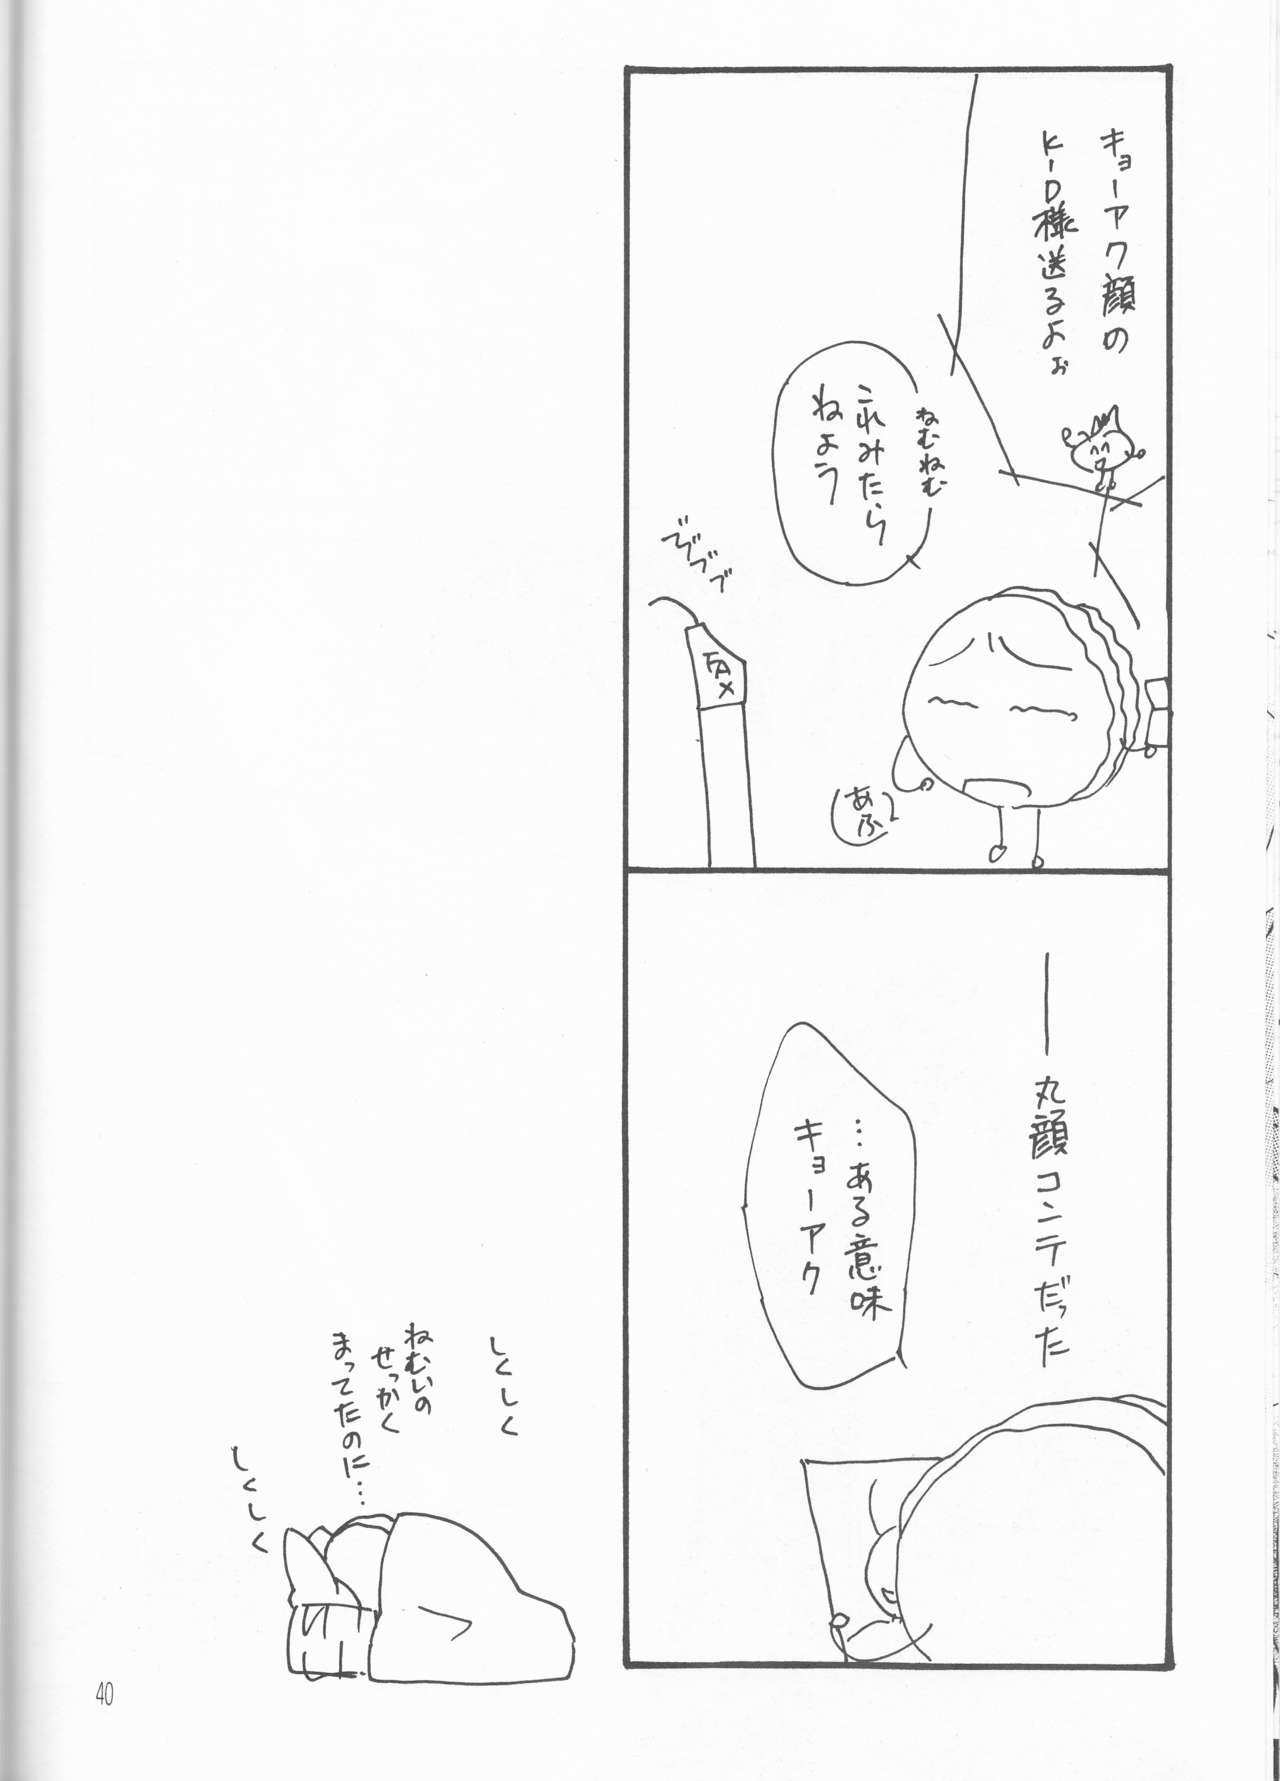 キョーアク顔の
K-D様送るよぉ
ねむねむ
これみたら
ねよう
FAX
あふ
丸顔コンテだった
…ある意味
キョーアク
しくしく
ねむいの
せっかく
まってたのに…
しくしく
40